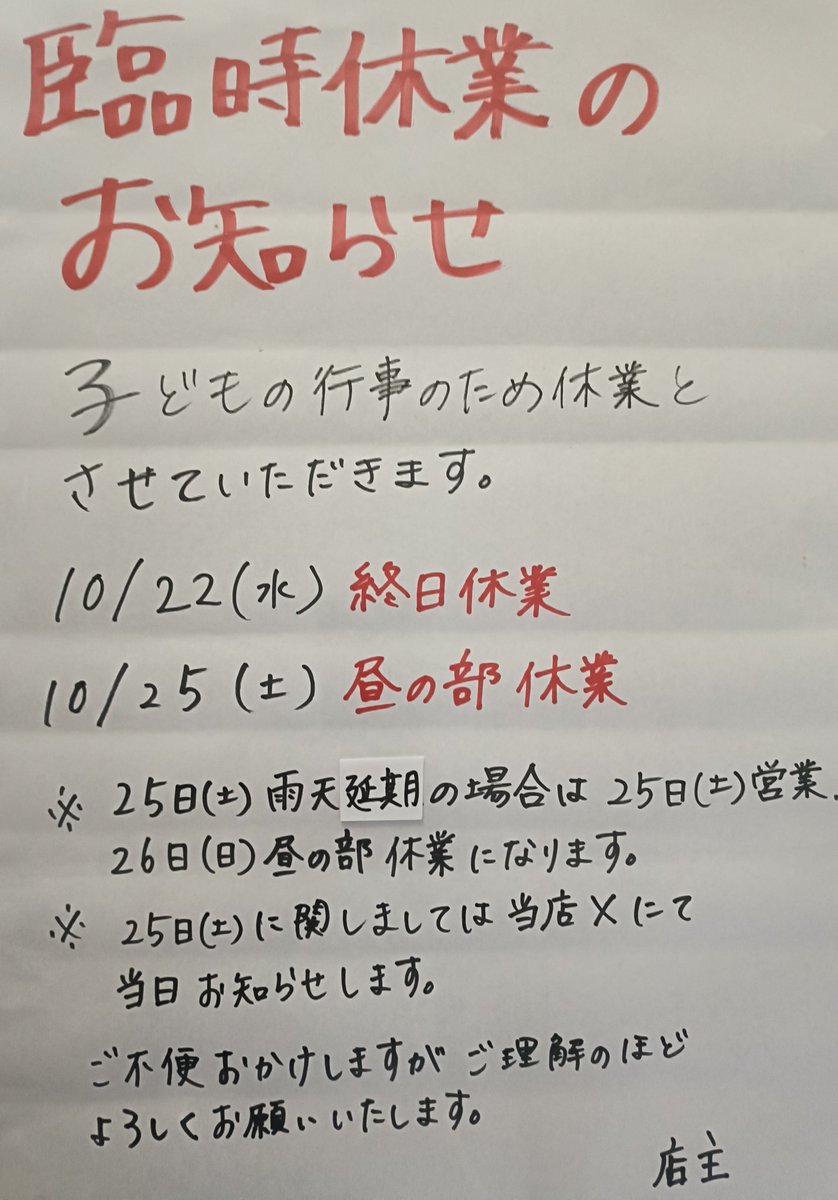 臨時休業の
お知らせ
子どもの行事のため休業と
させていただきます。
10/22(水) 終日休業
10/25(土) 昼の部 休業
※ 25日(土)雨天延期の場合は 25日(土)営業.
26日(日)昼の部 休業になります。
※ 25日(土)に関しましては当店Xにて
当日お知らせします。
ご不便おかけしますが ご理解のほど
よろしくお願いいたします。
店主